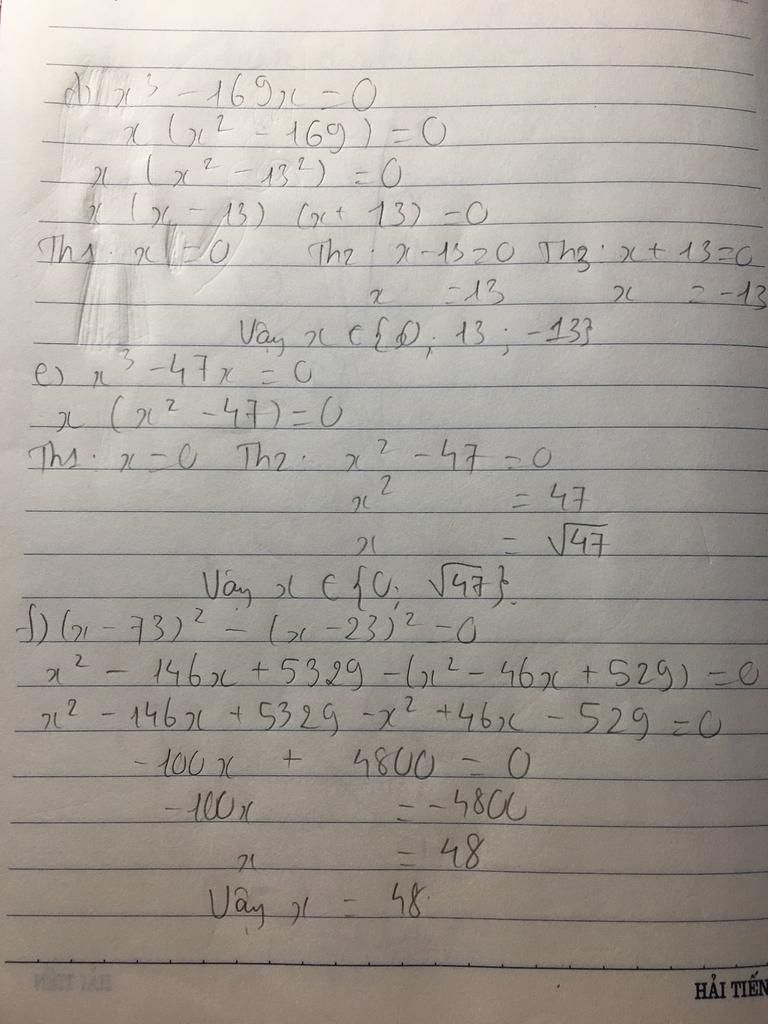 d) x³ - 169x = 0
x (x² - 169) = 0
x (x² - 13²) = 0
x (x - 13) (x + 13) = 0
Th1: x = 0 Th2: x - 13 = 0 Th3: x + 13 = 0
x = 13 x = -13
Vậy x ∈ {0; 13; -13}
e) x³ - 47x = 0
x (x² - 47) = 0
Th1: x = 0 Th2: x² - 47 = 0
x² = 47
x = √47
Vậy x ∈ {0; √47}.
f) (x - 73)² - (x - 23)² = 0
x² - 146x + 5329 - (x² - 46x + 529) = 0
x² - 146x + 5329 - x² + 46x - 529 = 0
-100x + 4800 = 0
-100x = -4800
x = 48
Vậy x = 48.
HẢI TIẾN